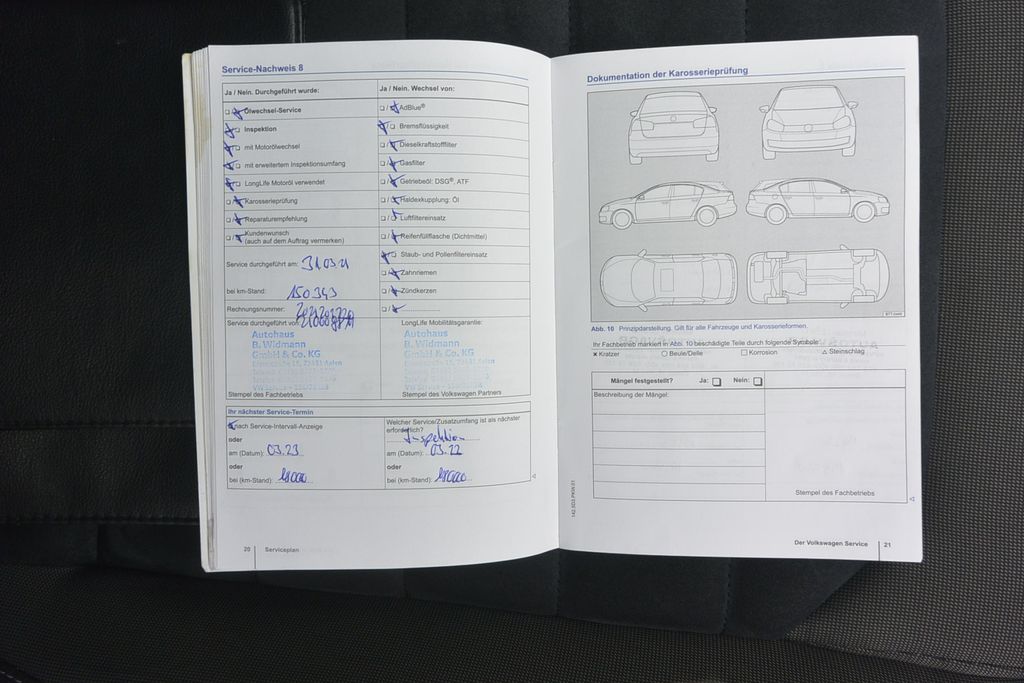 Service-Nachweis 8
Ja / Nein. Durchgeführt wurde:
Ölwechsel-Service
Inspektion
mit Motorölwechsel
mit erweitertem Inspektionsumfang
LongLife Motoröl verwendet
Karosserieprüfung
Reparaturempfehlung
Kundenwunsch
(auch auf dem Auftrag vermerken)
Service durchgeführt am: 31.03.21
bei km-Stand: 150343
Rechnungsnummer:
Service durchgeführt von:
Autohaus
B. Widmann
GmbH & Co. KG
Stempel des Fachbetriebs
Ja / Nein. Wechsel von:
AdBlue®
Bremsflüssigkeit
Dieselkraftstofffilter
Gasfilter
Getriebeöl: DSG®, ATF
Haldexkupplung: Öl
Luftfiltereinsatz
Reifenfüllflasche (Dichtmittel)
Staub- und Pollenfiltereinsatz
Zahnriemen
Zündkerzen
LongLife Mobilitätsgarantie:
Autohaus
B. Widmann
GmbH & Co. KG
Stempel des Volkswagen Partners
Ihr nächster Service-Termin
nach Service-Intervall-Anzeige
oder
am (Datum): 03.23
oder
bei (km-Stand):
Welcher Service/Zusatzumfang ist als nächster
erforderlich?
Inspektion
am (Datum): 03.22
oder
bei (km-Stand):
20 Serviceplan
Dokumentation der Karosserieprüfung
Abb. 10 Prinzipdarstellung. Gilt für alle Fahrzeuge und Karosserieformen.
Ihr Fachbetrieb markiert in Abb. 10 beschädigte Teile durch folgende Symbole
Kratzer Beule/Delle Korrosion Steinschlag
Mängel festgestellt? Ja: Nein:
Beschreibung der Mängel:
Stempel des Fachbetriebs
Der Volkswagen Service 21